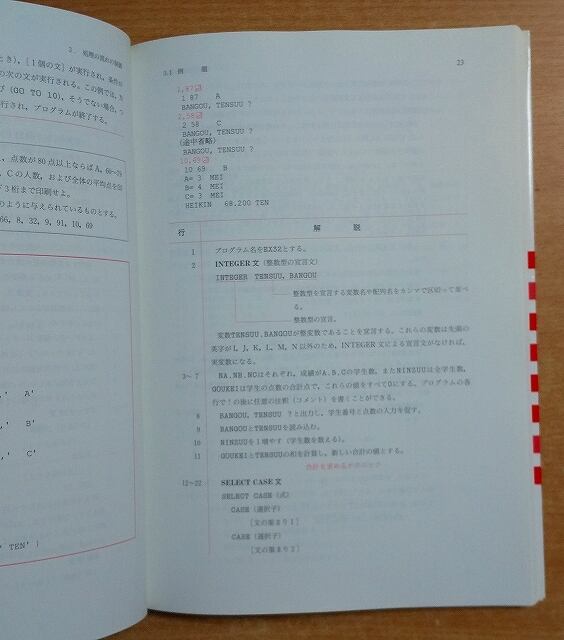 3. 処理の流れの制御
とき), [1個の文] が実行され, 条件が
の次の文が実行される。この例では, 万
び (GO TO 10), そうでない場合, つ
行され, プログラムが終了する。
, 点数が80点以上ならばA, 60〜79
, Cの人数, および全体の平均点を出
下3桁まで印刷せよ。
のように与えられているものとする。
66, 8, 32, 9, 91, 10, 69
,' A'
,' B'
,' C'
' TEN' )
3.1 例 題 23
1,87
1 87 A
BANGOU, TENSUU ?
2,58
2 58 C
BANGOU, TENSUU ?
(途中省略)
BANGOU, TENSUU ?
10,69
10 69 B
A= 3 MEI
B= 4 MEI
C= 3 MEI
HEIKIN 68.200 TEN
行 解 説
1 プログラム名をBX32とする。
2 INTEGER文 (整数型の宣言文)
INTEGER TENSUU, BANGOU
整数型を宣言する変数名や配列名をカンマで区切って並べ
る。
整数型の宣言。
変数TENSUU, BANGOUが整変数であることを宣言する。これらの変数は先頭の
英字がI, J, K, L, M, N以外のため, INTEGER文による宣言文がなければ,
実変数になる。
3〜7 NA, NB, NCはそれぞれ, 成績がA, B, Cの学生数, またNINZUUは全学生数,
GOUKEIは学生の点数の合計点で, これらの値をすべて0にする。プログラムの各
行で！の後に任意の注釈 (コメント) を書くことができる。
8 BANGOU, TENSUU ?と出力し, 学生番号と点数の入力を促す。
9 BANGOUとTENSUUを読み込む。
10 NINZUUを1増やす (学生数を数える)。
11 GOUKEIとTENSUUの和を計算し, 新しい合計の値とする。
合計を求めるテクニック
12〜22 SELECT CASE文
SELECT CASE (式)
CASE (選択子)
[文の集まり1]
CASE (選択子)
[文の集まり2]